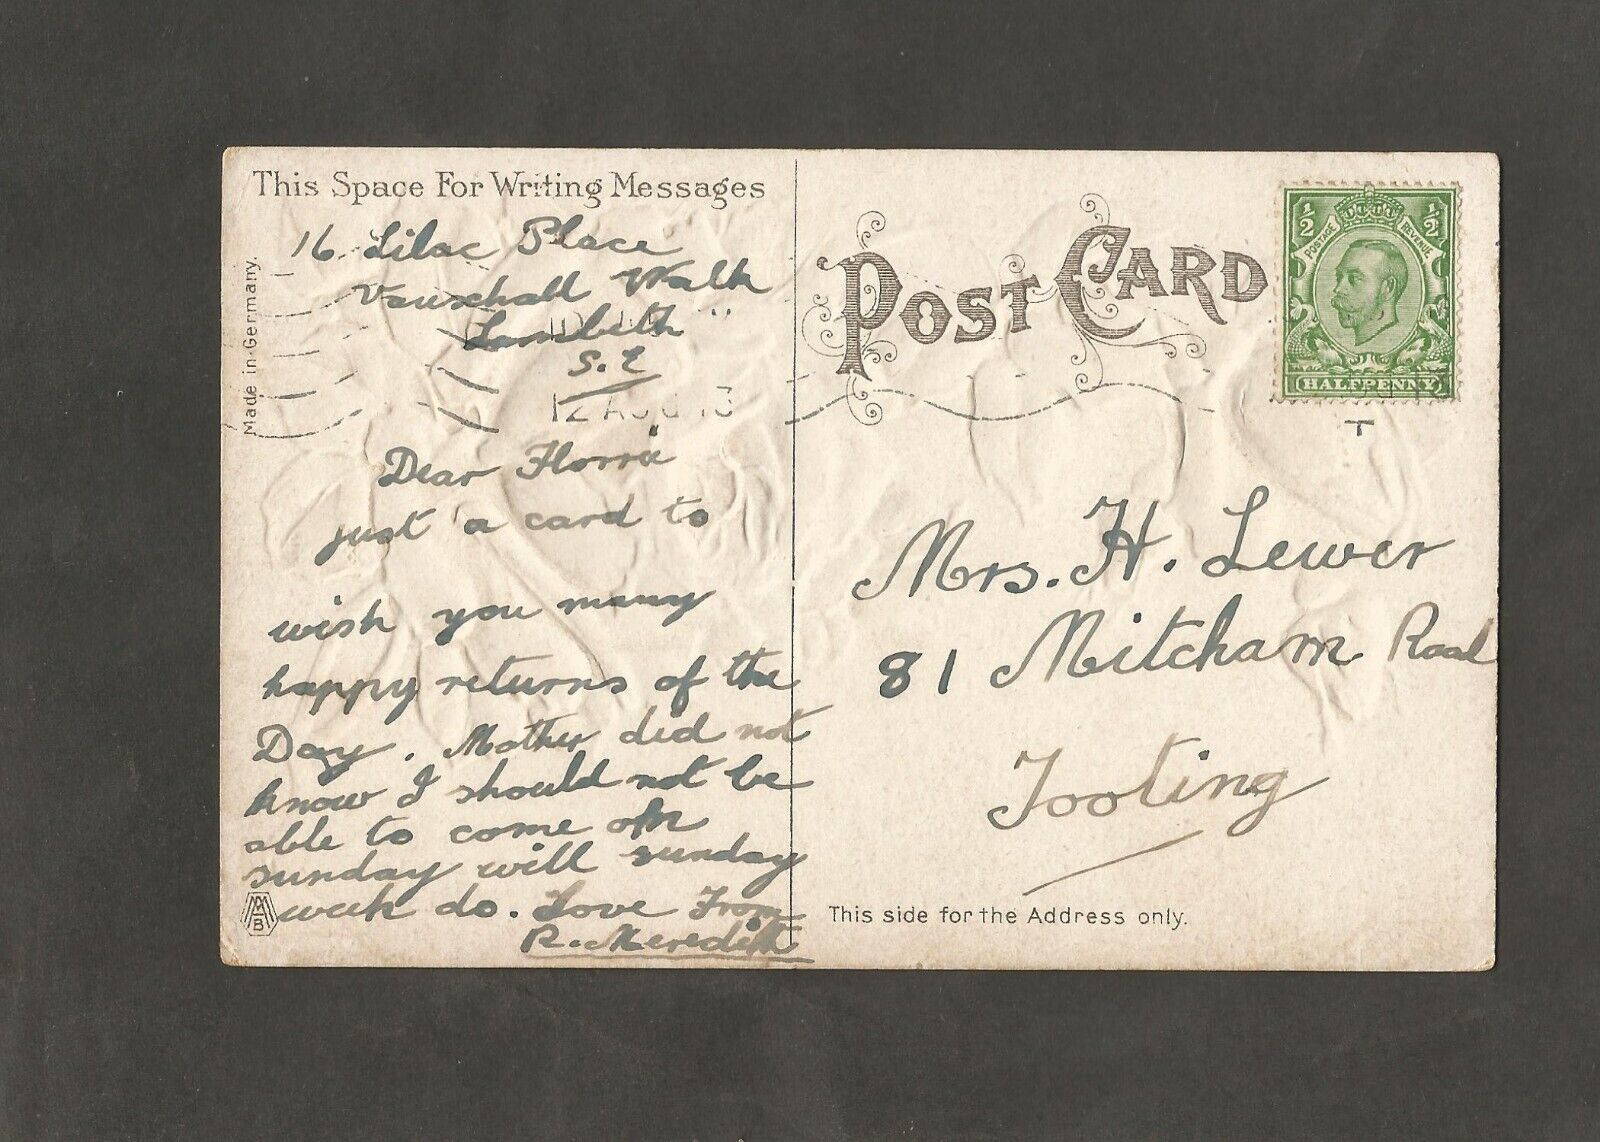 This Space For Writing Messages
16 Lilac Place
Vauxhall Walk
Lambeth "
S.E
12 AUG 13
Dear Florrie
just a card to
wish you many
happy returns of the
Day. Mother did not
know I should not be
able to come on
sunday will sunday
week do. Love From
R. Meredith
Made in Germany.
MB
POST CARD
½ ½
POSTAGE REVENUE
HALFPENNY
T
Mrs. H. Lewer
81 Mitcham Road
Tooting
This side for the Address only.